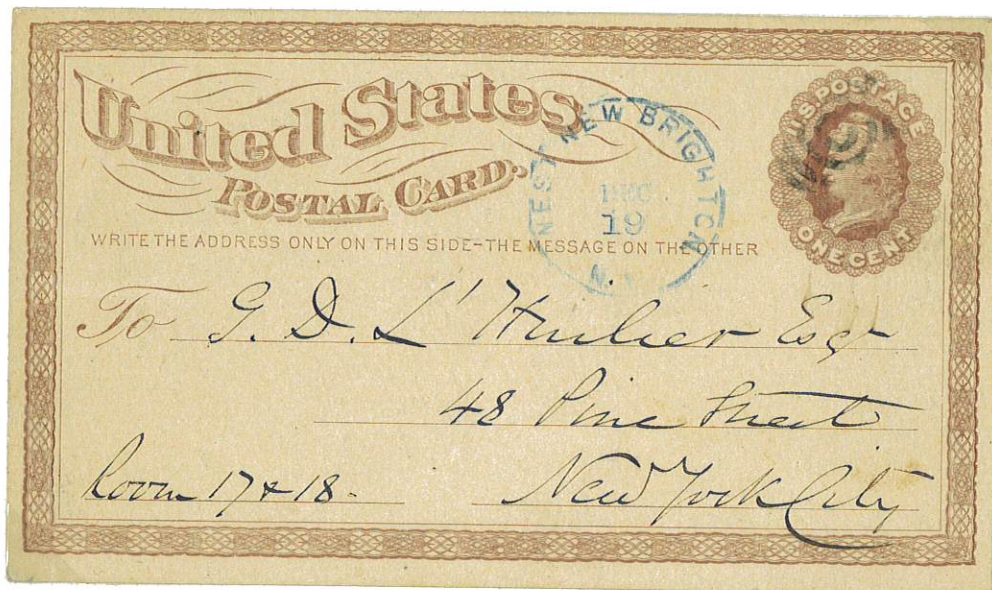 United States
POSTAL CARD.
WEST NEW BRIGHTON
DEC
19
N.Y.
U.S. POSTAGE
ONE CENT
WRITE THE ADDRESS ONLY ON THIS SIDE-THE MESSAGE ON THE OTHER
To G. D. L'Hulier Esq
48 Pine Street
Room 17 & 18. New York City